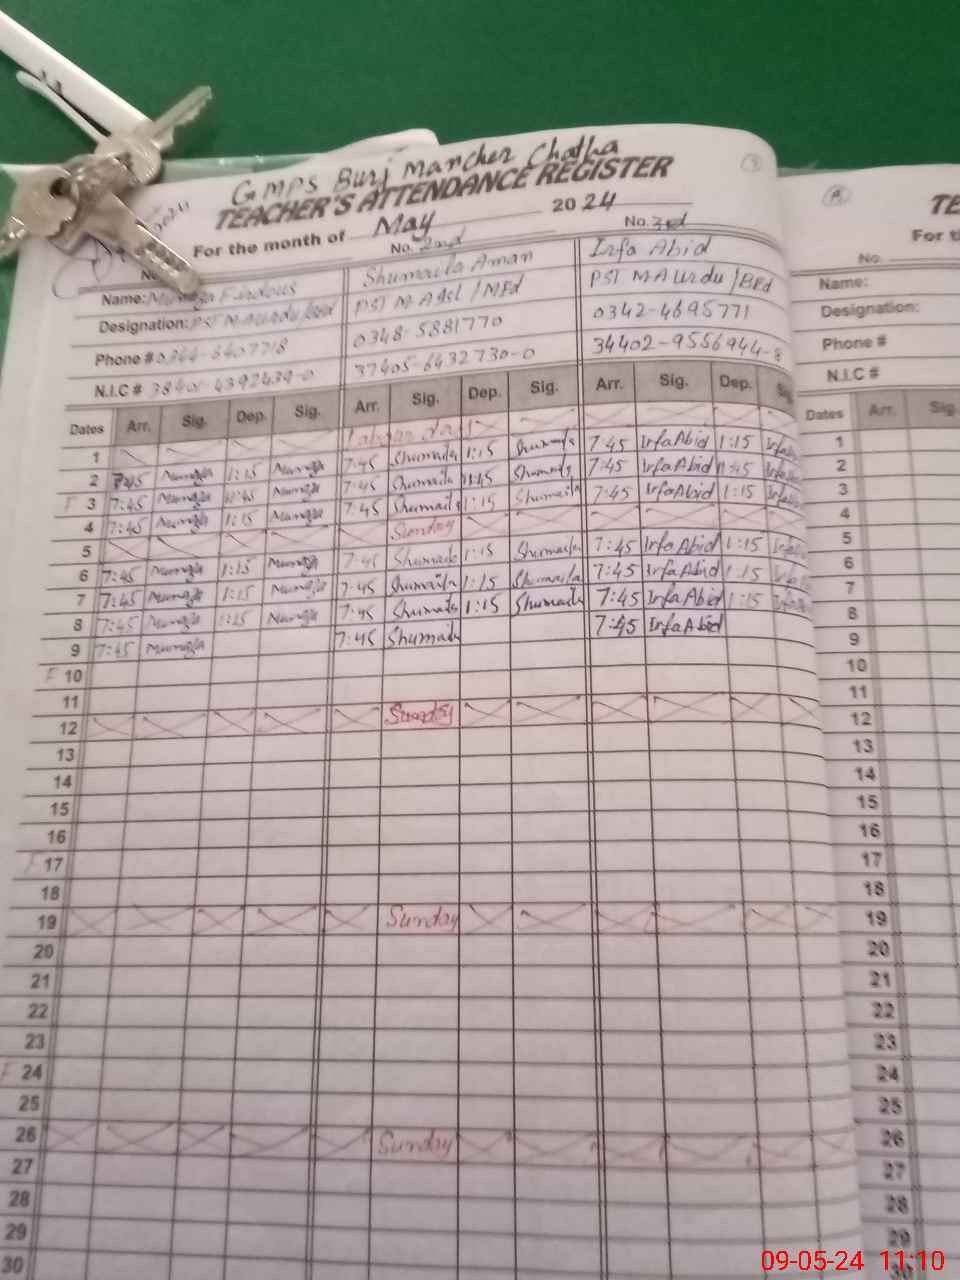 GMPS Burj Mancher Chatha
TEACHER'S ATTENDANCE REGISTER
For the month of May 2024
No. 2nd No. 3rd
Name: Shumaila Aman Irfa Abid
Designation: PST M.A Urdu/BEd PST M A /MEd PST M A Urdu/BEd
Phone # 0344-6407718 0348-5881770 0342-4695771
N.I.C # 38401-4392439-0 37405-6432730-0 34402-9556944-8
Dates Arr. Sig. Dep. Sig. Arr. Sig. Dep. Sig. Arr. Sig. Dep. Sig.
1 Labour day
2 7:45 1:15 7:45 Shumaila 1:15 Shumaila 7:45 IrfaAbid 1:15
F 3 7:45 11:45 7:45 Shumaila 11:45 Shumaila 7:45 IrfaAbid 11:45
4 7:45 1:15 7:45 Shumaila 1:15 Shumaila 7:45 IrfaAbid 1:15
5 Sunday
6 7:45 1:15 7:45 Shumaila 1:15 Shumaila 7:45 IrfaAbid 1:15
7 7:45 1:15 7:45 Shumaila 1:15 Shumaila 7:45 IrfaAbid 1:15
8 7:45 1:15 7:45 Shumaila 1:15 Shumaila 7:45 IrfaAbid 1:15
9 7:45 7:45 Shumaila 7:45 IrfaAbid
F 10
11
12 Sunday
13
14
15
16
F 17
18
19 Sunday
20
21
22
23
F 24
25
26 Sunday
27
28
29
30
TE
For th
No.
Name:
Designation:
Phone #
N.I.C #
Dates Arr. Sig.
1
2
3
4
5
6
7
8
9
10
11
12
13
14
15
16
17
18
19
20
21
22
23
24
25
26
27
28
29
30
09-05-24 11:10